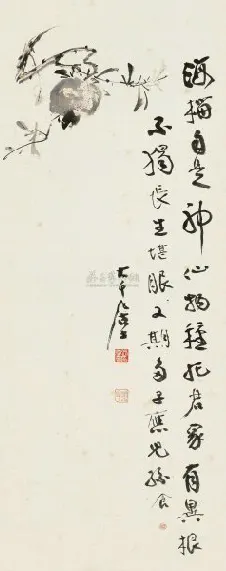 海榴自是神仙物種託君家有異根
不獨長生堪服又期多子應兒孫 食
大千居士